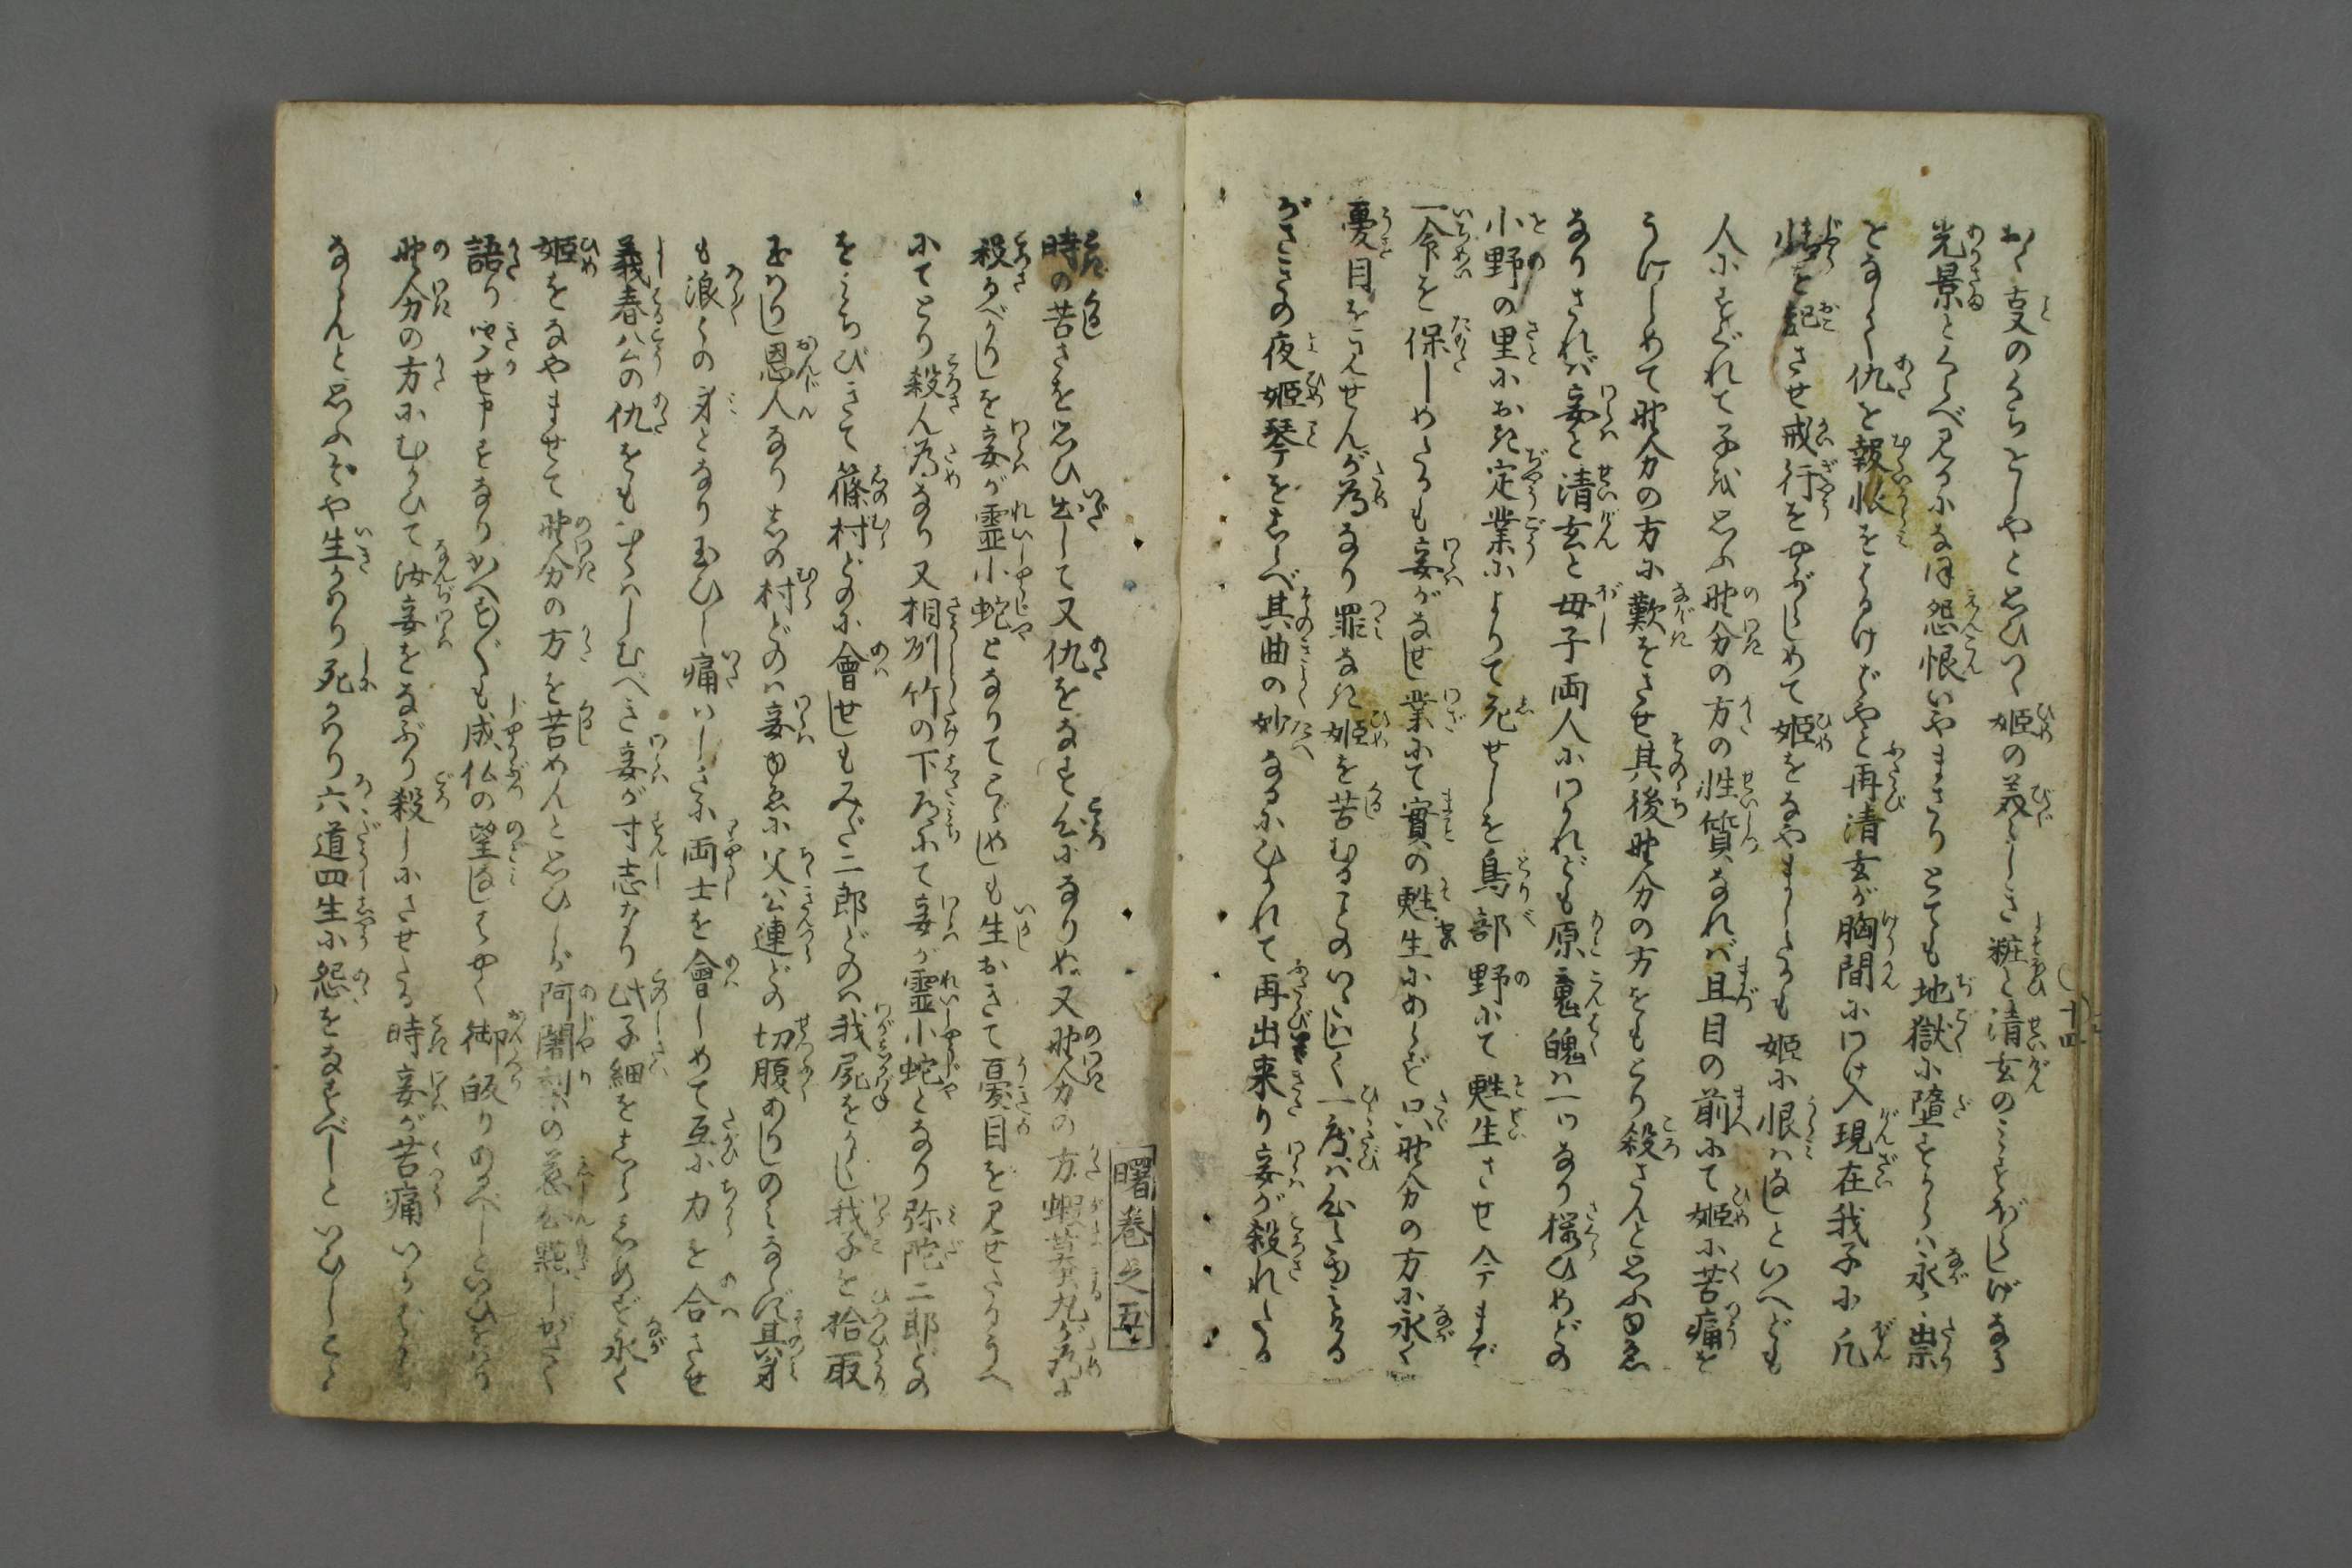 おく支のくちをしやと思ひつゝ姫の美しき粧と清玄のみすぼらしげなる
光景とくらべ見るになほ怨恨いやまさりとても地獄に堕するからハ永く祟
となりて仇を報恨をはらすべしやと再清玄が胸間にわけ入現在我子に凡
情を起させ戒行をやぶらしめて姫をなやましたるも姫に恨ハなしといへども
人にすぐれて子を思ふ野分の方の性質なれバ且目の前にて姫に苦痛を
うけしめて野分の方に歎をさせ其後野分の方をもとり殺さんと思ふゆゑ
なりされバ妾と清玄と母子両人にわかれども原魂魄ハ一つなり桜ひめどの
小野の里におきて定業によりて死せしを鳥部野にて甦生させ今まで
一命を保しめたるも妾がなせし業にて實の甦生にあらず只野分の方に永く
憂目を見せんが為なり罪なき姫を苦むることのいとほしく一度ハ
がさきの夜姫琴をしらべ其曲の妙なるにひかれて再出来り妾が殺れたる
十四
曙巻之五
時の苦さを思ひ出して又仇をなす心になりぬ又野分の方蝦蟇丸が為に
殺るべかりしを妾が霊小蛇となりてとゞめしも生おきて憂目を見せたるうへ
にてとり殺ん為なり又相州竹の下道にて妾が霊小蛇となり弥陀二郎どの
をみちびきて篠村どのに會せしもみだ二郎どのハ我屍をかくし我子を拾取
玉はりし恩人なり志の村どのハ妾ゆゑに父公連どの切腹ありしのみならず其身
も浪々の身となり玉ひし痛いしさに両士を會しめて互に力を合させ
義春公の仇をも討しむべき妾が寸志なり此子細をしらしめず永く
姫をなやませて野分の方を苦めんと思ひしが阿闍梨の慈心黙しがたく
語り聞せ申すなりかへすがへすも成仏の望なしはやく御皈りあるべしといひをはり
野分の方にむかひて汝妾をなぶり殺しにさせたる時妾が苦痛いかならん
ならんと思ふぞや生かはり死かはり六道四生に怨をなすべしといひしこと